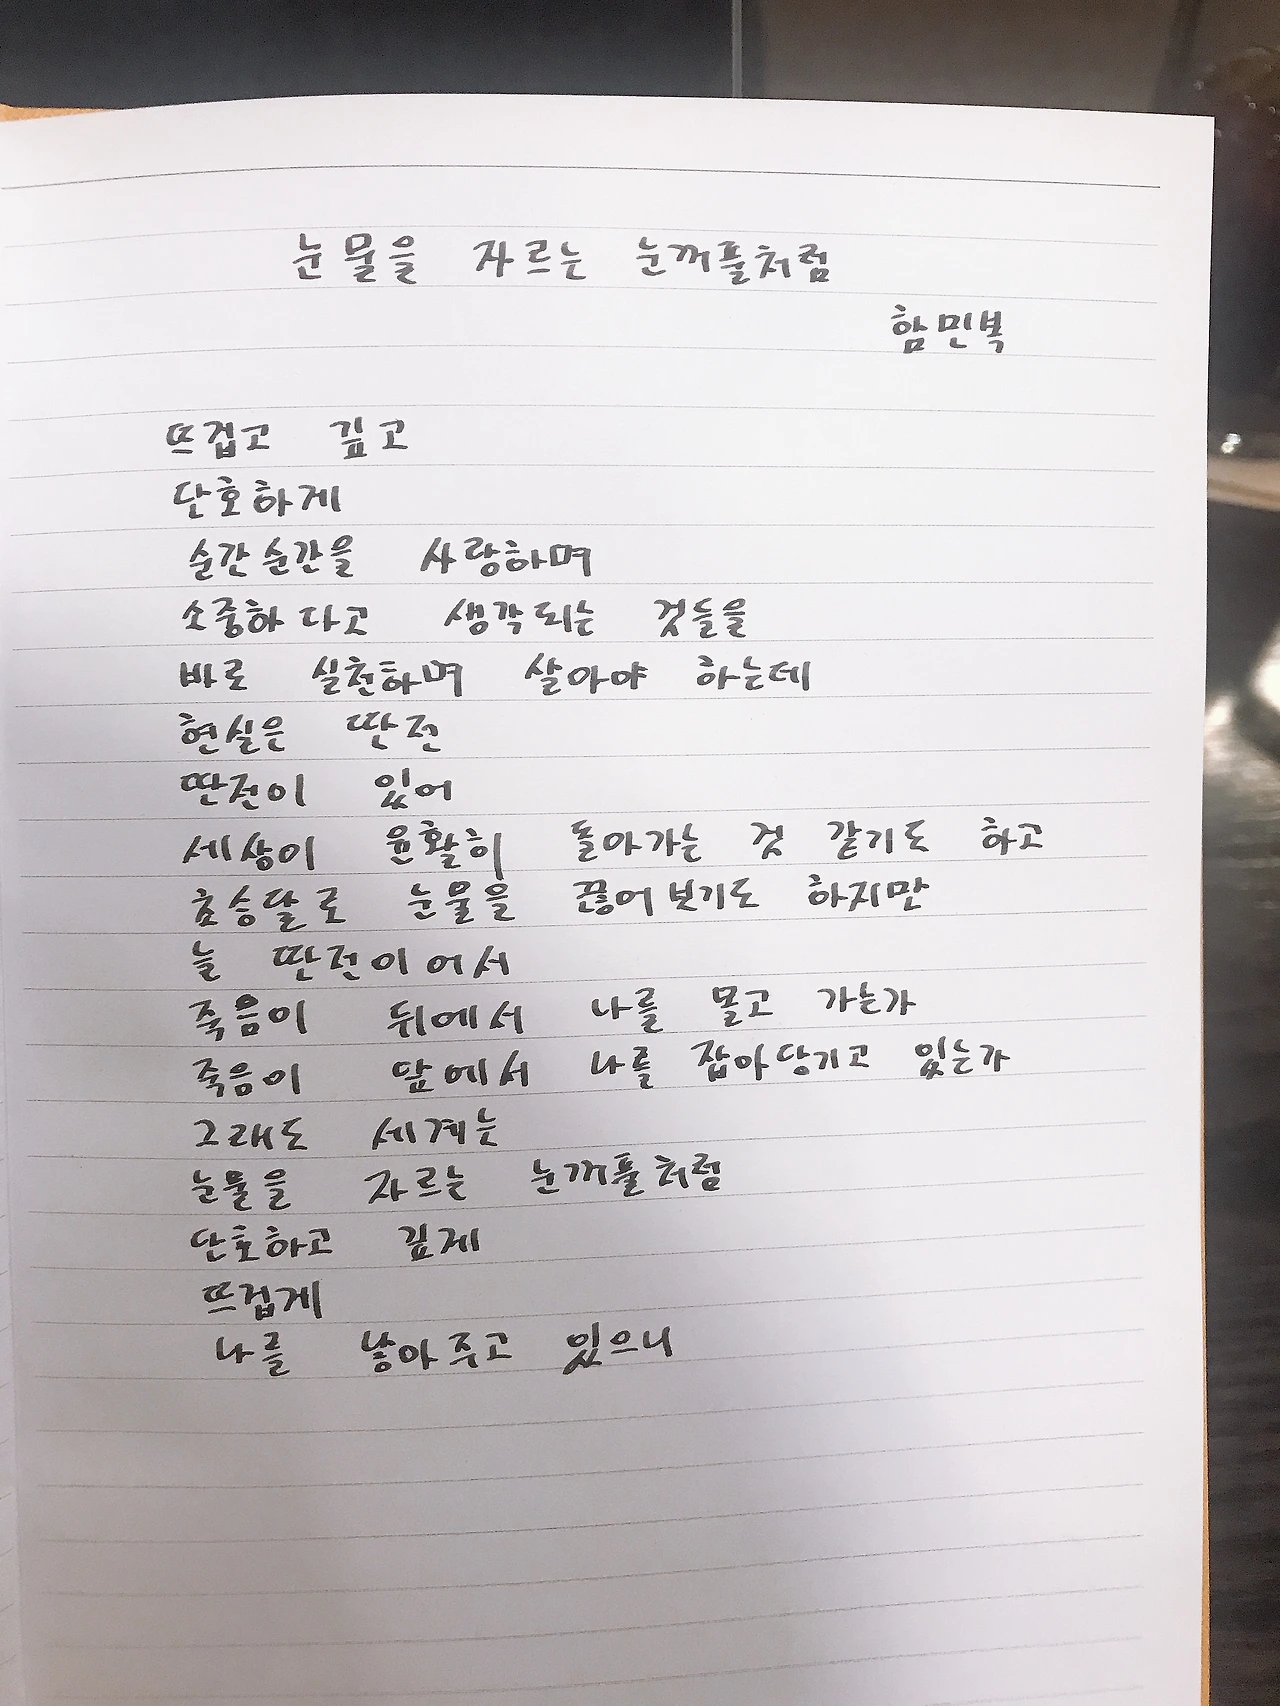 눈물을 자르는 눈꺼풀처럼
함민복
뜨겁고 깊고
단호하게
순간순간을 사랑하며
소중하다고 생각되는 것들을
바로 실천하며 살아야 하는데
현실은 딴전
딴전이 있어
세상이 윤활히 돌아가는 것 같기도 하고
초승달로 눈물을 끊어보기도 하지만
늘 딴전이어서
죽음이 뒤에서 나를 몰고 가는가
죽음이 앞에서 나를 잡아당기고 있는가
그래도 세계는
눈물을 자르는 눈꺼풀처럼
단호하고 깊게
뜨겁게
나를 낳아주고 있으니